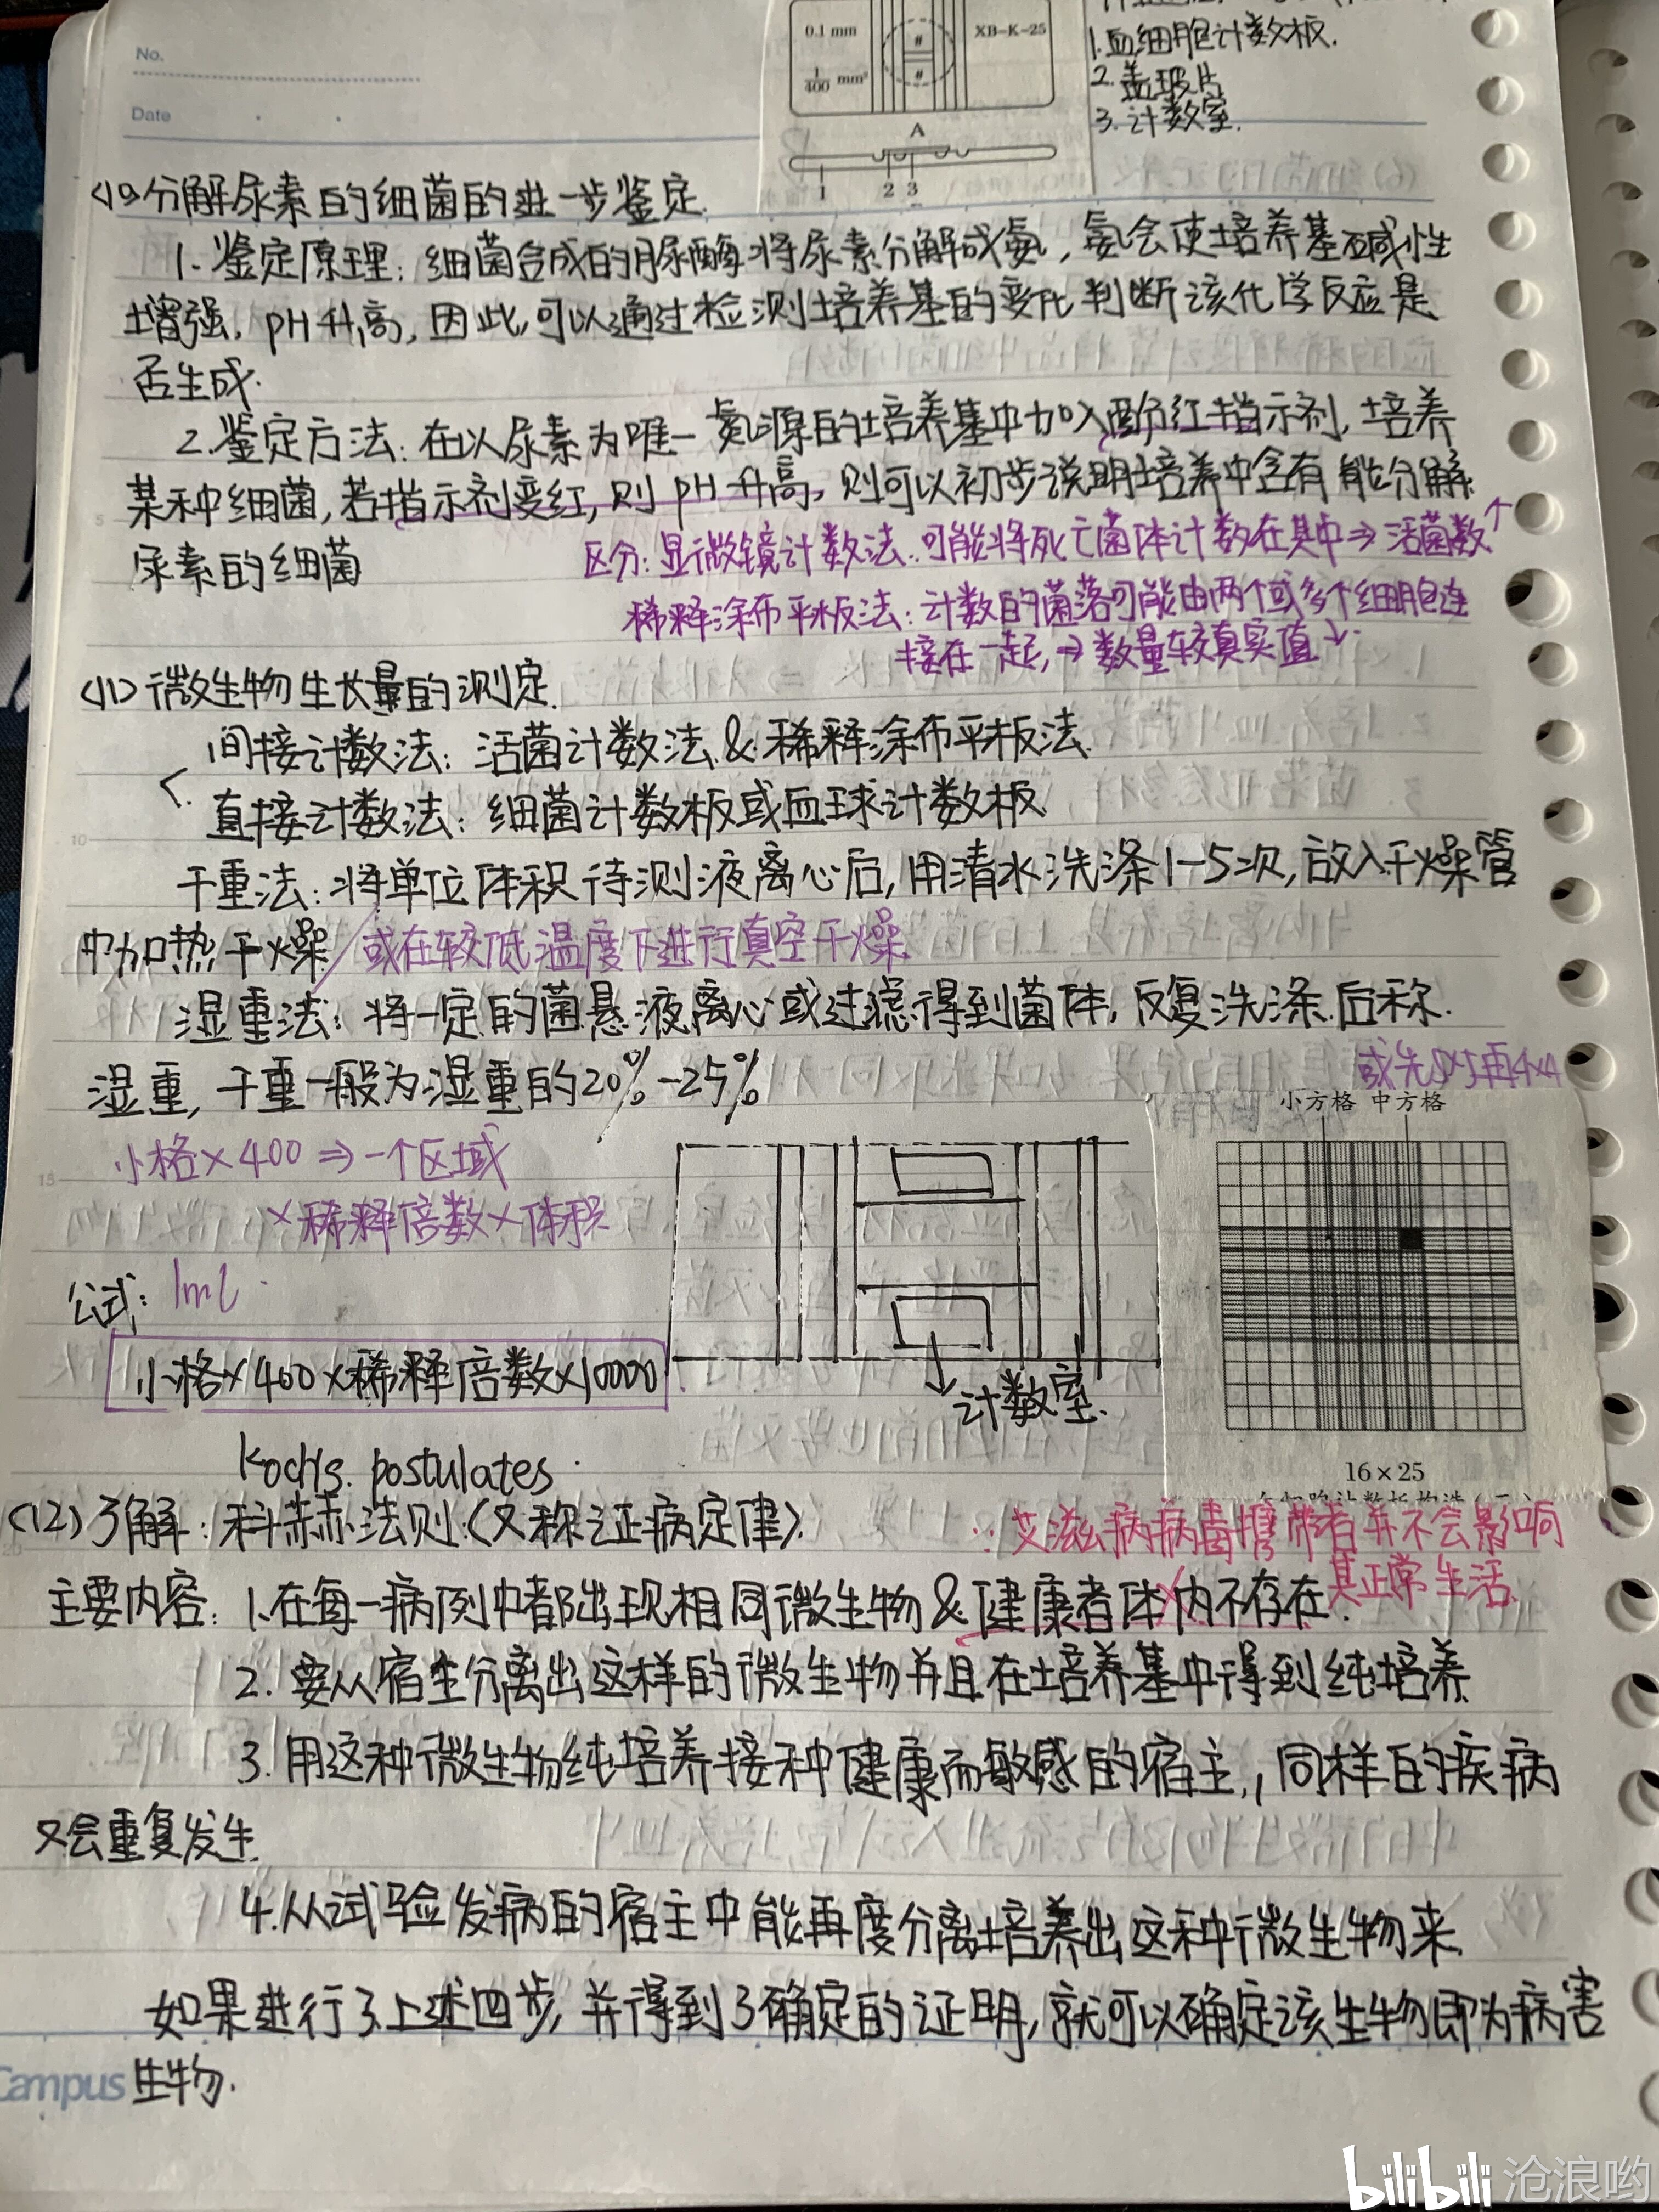 No.
Date
0.1 mm
XB-K-25
1/400 mm²
A
1 2 3
1.血细胞计数板.
2.盖玻片
3.计数室.
(10)分解尿素的细菌的进一步鉴定.
1.鉴定原理:细菌合成的脲酶将尿素分解成氨,氨会使培养基碱性
增强,pH升高,因此,可以通过检测培养基的变化判断该化学反应是
否生成.
2.鉴定方法:在以尿素为唯一氮源的培养基中加入酚红指示剂,培养
某种细菌,若指示剂变红,则pH升高,则可以初步说明培养中含有能分解
尿素的细菌
区分:显微镜计数法:可能将死亡菌体计数在其中⇒活菌数↑
稀释涂布平板法:计数的菌落可能由两个或多个细胞连
接在一起,⇒数量较真实值↓.
(11)微生物生长量的测定.
间接计数法:活菌计数法&稀释涂布平板法.
直接计数法:细菌计数板或血球计数板
干重法:将单位体积待测液离心后,用清水洗涤1-5次,放入干燥管
中加热干燥/或在较低温度下进行真空干燥
湿重法:将一定的菌悬液离心或过滤得到菌体,反复洗涤后称
湿重,干重一般为湿重的20%-25%
或先×25再4×4
小方格 中方格
小格×400⇒一个区域
×稀释倍数×体积
公式:1ml
小格×400×稀释倍数×10000
计数室.
16×25
Koch's postulates.
(12)了解:科赫法则(又称证病定律)
∵艾滋病病毒携带者并不会影响
其正常生活
主要内容:1.在每一病例中都出现相同微生物&健康者体内不存在.
2.要从宿主分离出这样的微生物并且在培养基中得到纯培养
3.用这种微生物纯培养接种健康而敏感的宿主,同样的疾病
又会重复发生
4.从试验发病的宿主中能再度分离培养出这种微生物来.
如果进行了上述四步,并得到了确定的证明,就可以确定该生物即为病害
生物.
Campus
bilibili 沧浪哟